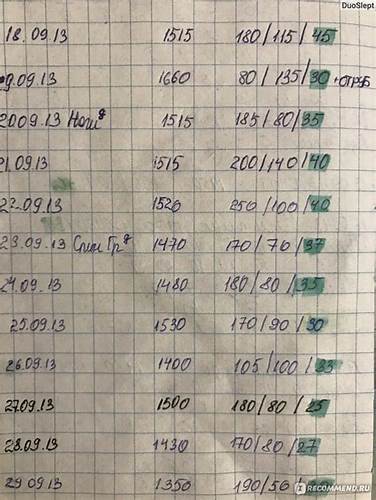 DuoSlept
18.09.13 1515 180/115/45
9.09.13 1660 80/135/30 +отруб
20.09.13 Ноги 1515 185/80/35
21.09.13 1515 200/140/40
22.09.13 1520 250/100/40
23.09.13 Спин Гр 1470 170/70/37
24.09.13 1480 180/80/35
25.09.13 1530 170/90/30
26.09.13 1400 105/100/33
27.09.13 1500 180/80/25
28.09.13 1430 170/80/27
29.09.13 1350 190/56/
IRECOMMEND.RU